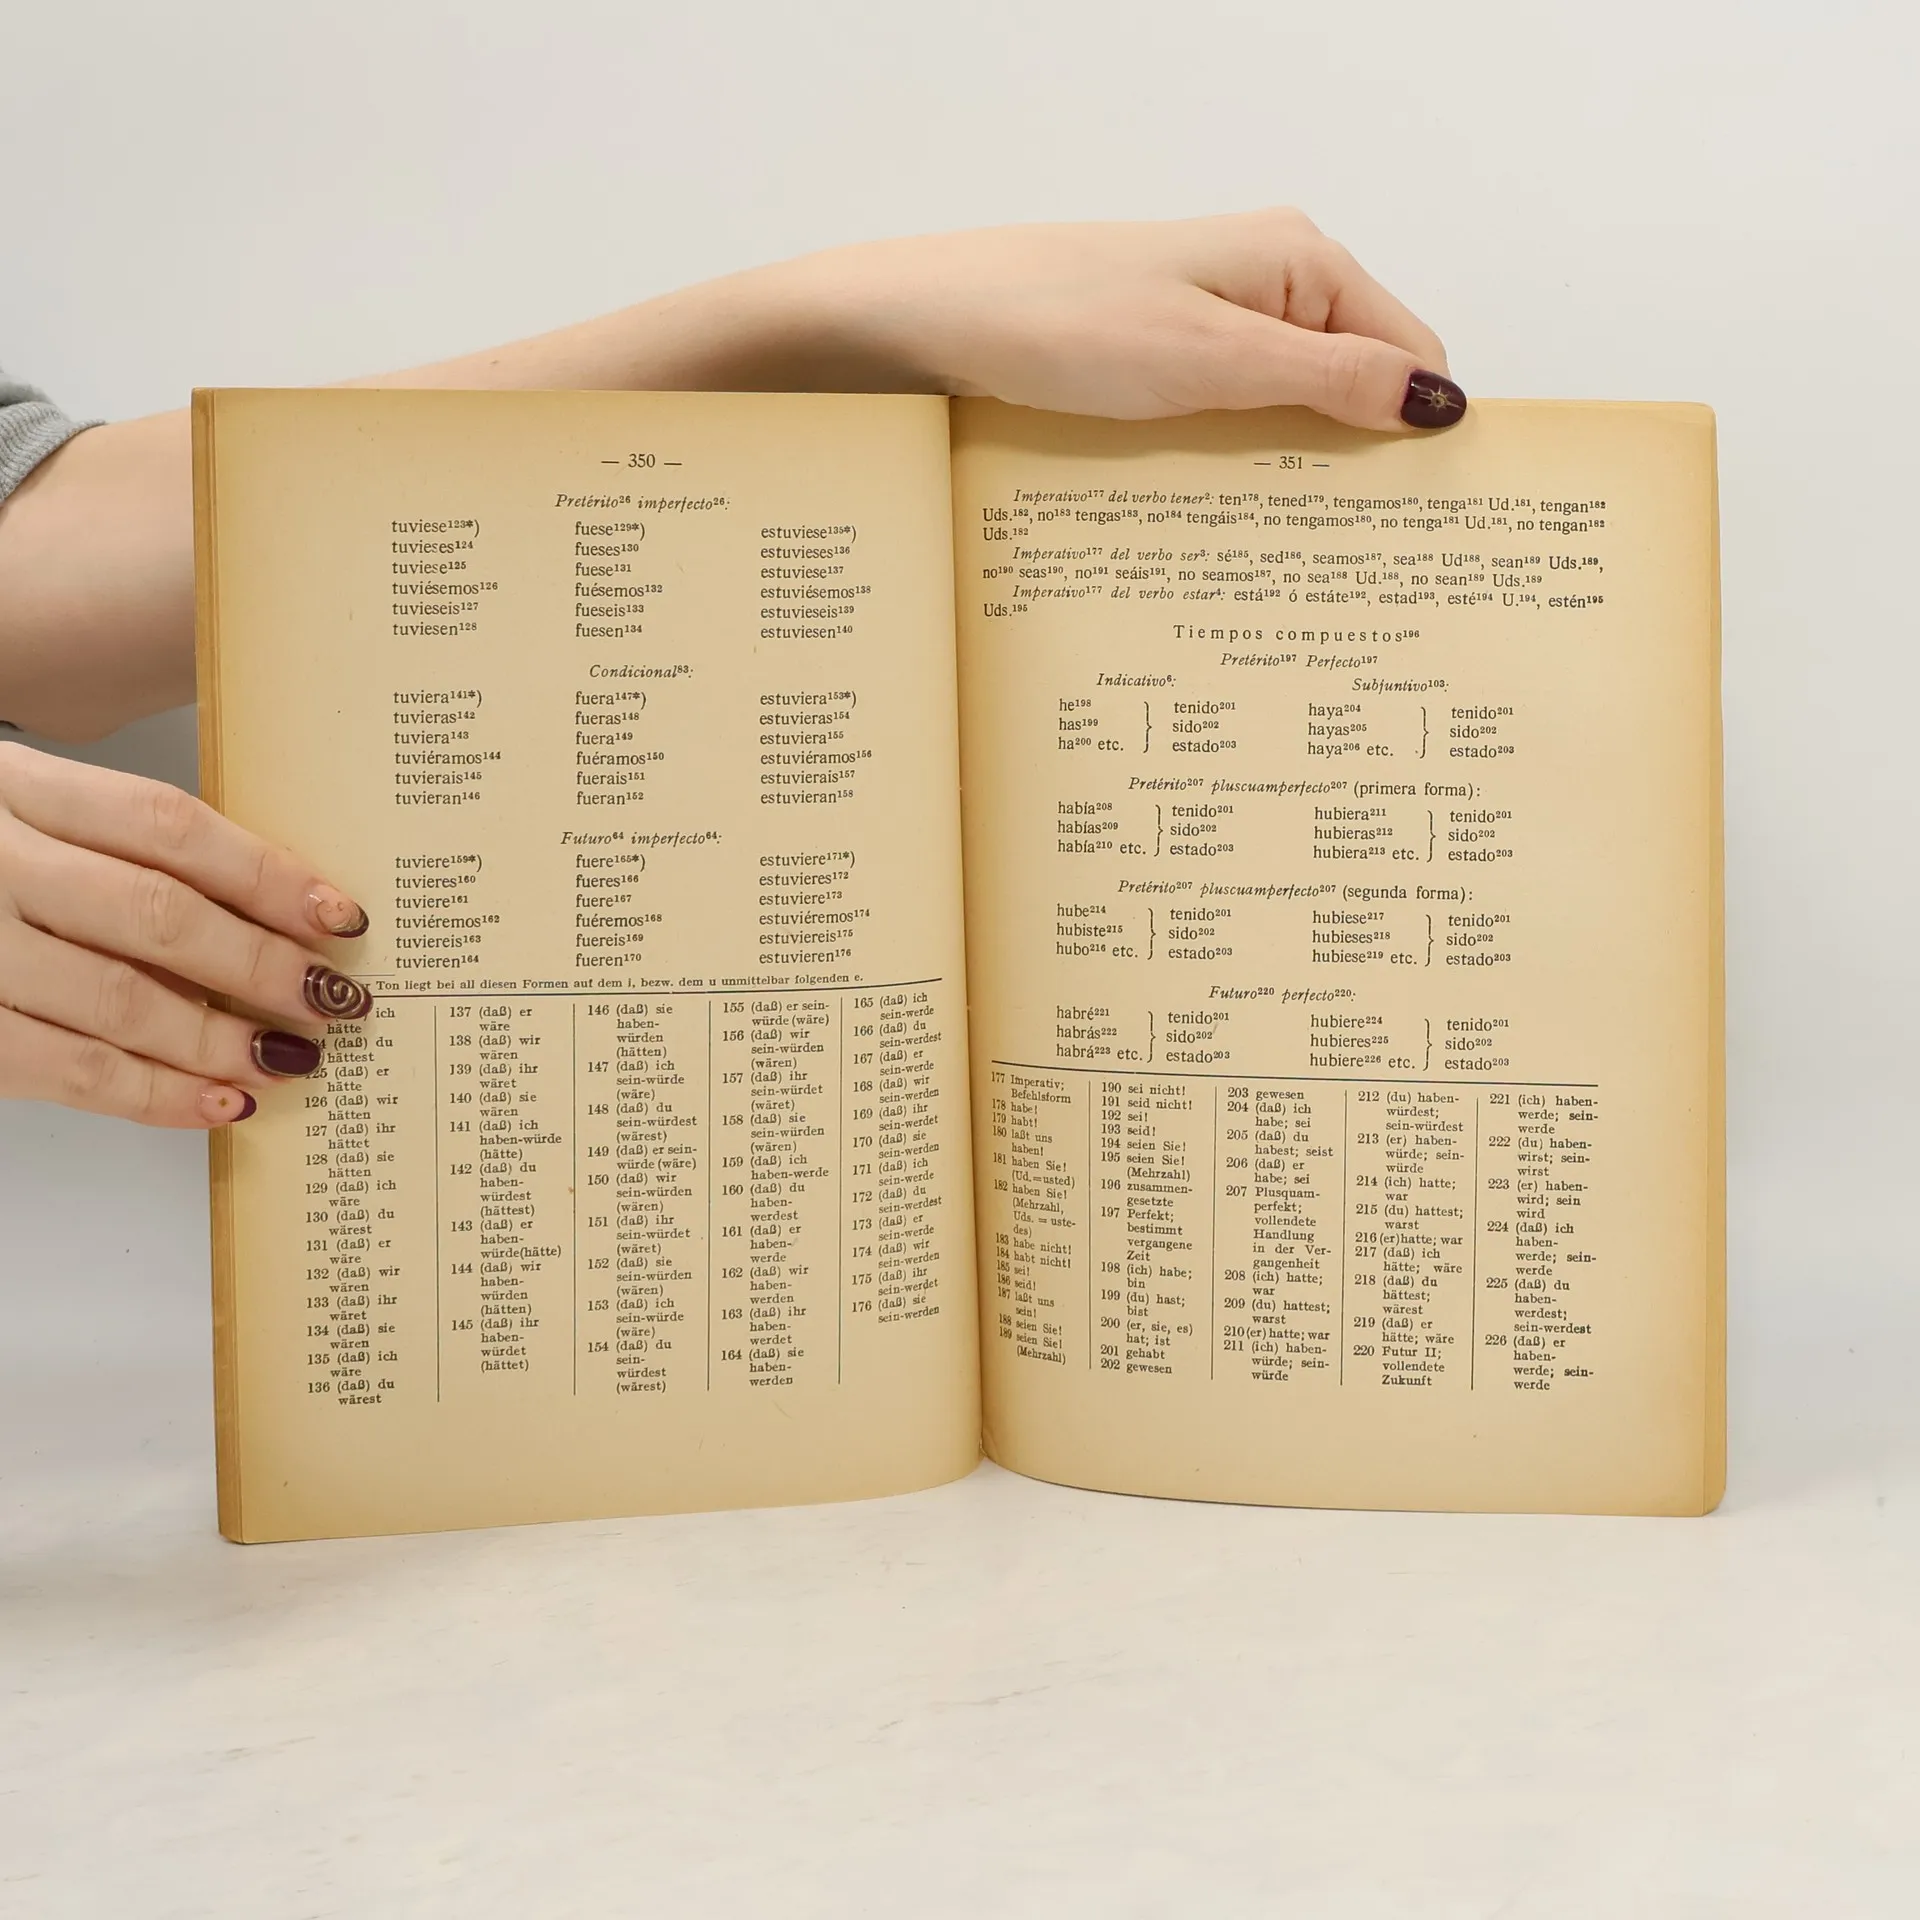 — 350 —
Pretérito²⁶ imperfecto²⁶:
tuviese¹²³*) fuese¹²⁹*) estuviese¹³⁵*)
tuvieses¹²⁴ fueses¹³⁰ estuvieses¹³⁶
tuviese¹²⁵ fuese¹³¹ estuviese¹³⁷
tuviésemos¹²⁶ fuésemos¹³² estuviésemos¹³⁸
tuvieseis¹²⁷ fueseis¹³³ estuvieseis¹³⁹
tuviesen¹²⁸ fuesen¹³⁴ estuviesen¹⁴⁰
Condicional⁸³:
tuviera¹⁴¹*) fuera¹⁴⁷*) estuviera¹⁵³*)
tuvieras¹⁴² fueras¹⁴⁸ estuvieras¹⁵⁴
tuviera¹⁴³ fuera¹⁴⁹ estuviera¹⁵⁵
tuviéramos¹⁴⁴ fuéramos¹⁵⁰ estuviéramos¹⁵⁶
tuvierais¹⁴⁵ fuerais¹⁵¹ estuvierais¹⁵⁷
tuvieran¹⁴⁶ fueran¹⁵² estuvieran¹⁵⁸
Futuro⁶⁴ imperfecto⁶⁴:
tuviere¹⁵⁹*) fuere¹⁶⁵*) estuviere¹⁷¹*)
tuvieres¹⁶⁰ fueres¹⁶⁶ estuvieres¹⁷²
tuviere¹⁶¹ fuere¹⁶⁷ estuviere¹⁷³
tuviéremos¹⁶² fuéremos¹⁶⁸ estuviéremos¹⁷⁴
tuviereis¹⁶³ fuereis¹⁶⁹ estuviereis¹⁷⁵
tuvieren¹⁶⁴ fueren¹⁷⁰ estuvieren¹⁷⁶
Ton liegt bei all diesen Formen auf dem i, bezw. dem u unmittelbar folgenden e.
ich
hätte
(daß) du
hättest
125 (daß) er
hätte
126 (daß) wir
hätten
127 (daß) ihr
hättet
128 (daß) sie
hätten
129 (daß) ich
wäre
130 (daß) du
wärest
131 (daß) er
wäre
132 (daß) wir
wären
133 (daß) ihr
wäret
134 (daß) sie
wären
135 (daß) ich
wäre
136 (daß) du
wärest
137 (daß) er
wäre
138 (daß) wir
wären
139 (daß) ihr
wäret
140 (daß) sie
wären
141 (daß) ich
haben-würde
(hätte)
142 (daß) du
haben-
würdest
(hättest)
143 (daß) er
haben-
würde(hätte)
144 (daß) wir
haben-
würden
(hätten)
145 (daß) ihr
haben-
würdet
(hättet)
146 (daß) sie
haben-
würden
(hätten)
147 (daß) ich
sein-würde
(wäre)
148 (daß) du
sein-würdest
(wärest)
149 (daß) er sein-
würde (wäre)
150 (daß) wir
sein-würden
(wären)
151 (daß) ihr
sein-würdet
(wäret)
152 (daß) sie
sein-würden
(wären)
153 (daß) ich
sein-würde
(wäre)
154 (daß) du
sein-
würdest
(wärest)
155 (daß) er sein-
würde (wäre)
156 (daß) wir
sein-würden
(wären)
157 (daß) ihr
sein-würdet
(wäret)
158 (daß) sie
sein-würden
(wären)
159 (daß) ich
haben-werde
160 (daß) du
haben-
werdest
161 (daß) er
haben-
werde
162 (daß) wir
haben-
werden
163 (daß) ihr
haben-
werdet
164 (daß) sie
haben-
werden
165 (daß) ich
sein-werde
166 (daß) du
sein-werdest
167 (daß) er
sein-werde
168 (daß) wir
sein-werden
169 (daß) ihr
sein-werdet
170 (daß) sie
sein-werden
171 (daß) ich
sein-werde
172 (daß) du
sein-werdest
173 (daß) er
sein-werde
174 (daß) wir
sein-werden
175 (daß) ihr
sein-werdet
176 (daß) sie
sein-werden
— 351 —
Imperativo¹⁷⁷ del verbo tener²: ten¹⁷⁸, tened¹⁷⁹, tengamos¹⁸⁰, tenga¹⁸¹ Ud.¹⁸¹, tengan¹⁸²
Uds.¹⁸², no¹⁸³ tengas¹⁸³, no¹⁸⁴ tengáis¹⁸⁴, no tengamos¹⁸⁰, no tenga¹⁸¹ Ud.¹⁸¹, no tengan¹⁸²
Uds.¹⁸²
Imperativo¹⁷⁷ del verbo ser³: sé¹⁸⁵, sed¹⁸⁶, seamos¹⁸⁷, sea¹⁸⁸ Ud¹⁸⁸, sean¹⁸⁹ Uds.¹⁸⁹,
no¹⁹⁰ seas¹⁹⁰, no¹⁹¹ seáis¹⁹¹, no seamos¹⁸⁷, no sea¹⁸⁸ Ud.¹⁸⁸, no sean¹⁸⁹ Uds.¹⁸⁹
Imperativo¹⁷⁷ del verbo estar⁴: está¹⁹² ó estáte¹⁹², estad¹⁹³, esté¹⁹⁴ U.¹⁹⁴, estén¹⁹⁵
Uds.¹⁹⁵
Tiempos compuestos¹⁹⁶
Pretérito¹⁹⁷ Perfecto¹⁹⁷
Indicativo⁶: Subjuntivo¹⁰³:
he¹⁹⁸ tenido²⁰¹ haya²⁰⁴ tenido²⁰¹
has¹⁹⁹ sido²⁰² hayas²⁰⁵ sido²⁰²
ha²⁰⁰ etc. estado²⁰³ haya²⁰⁶ etc. estado²⁰³
Pretérito²⁰⁷ pluscuamperfecto²⁰⁷ (primera forma):
había²⁰⁸ tenido²⁰¹ hubiera²¹¹ tenido²⁰¹
habías²⁰⁹ sido²⁰² hubieras²¹² sido²⁰²
había²¹⁰ etc. estado²⁰³ hubiera²¹³ etc. estado²⁰³
Pretérito²⁰⁷ pluscuamperfecto²⁰⁷ (segunda forma):
hube²¹⁴ tenido²⁰¹ hubiese²¹⁷ tenido²⁰¹
hubiste²¹⁵ sido²⁰² hubieses²¹⁸ sido²⁰²
hubo²¹⁶ etc. estado²⁰³ hubiese²¹⁹ etc. estado²⁰³
Futuro²²⁰ perfecto²²⁰:
habré²²¹ tenido²⁰¹ hubiere²²⁴ tenido²⁰¹
habrás²²² sido²⁰² hubieres²²⁵ sido²⁰²
habrá²²³ etc. estado²⁰³ hubiere²²⁶ etc. estado²⁰³
177 Imperativ;
Befehlsform
178 habe!
179 habt!
180 laßt uns
haben!
181 haben Sie!
(Ud.=usted)
182 haben Sie!
(Mehrzahl,
Uds. = uste-
des)
183 habe nicht!
184 habt nicht!
185 sei!
186 seid!
187 laßt uns
sein!
188 seien Sie!
189 seien Sie!
(Mehrzahl)
190 sei nicht!
191 seid nicht!
192 sei!
193 seid!
194 seien Sie!
195 seien Sie!
(Mehrzahl)
196 zusammen-
gesetzte
197 Perfekt;
bestimmt
vergangene
Zeit
198 (ich) habe;
bin
199 (du) hast;
bist
200 (er, sie, es)
hat; ist
201 gehabt
202 gewesen
203 gewesen
204 (daß) ich
habe; sei
205 (daß) du
habest; seist
206 (daß) er
habe; sei
207 Plusquam-
perfekt;
vollendete
Handlung
in der Ver-
gangenheit
208 (ich) hatte;
war
209 (du) hattest;
warst
210(er)hatte; war
211 (ich) haben-
würde; sein-
würde
212 (du) haben-
würdest;
sein-würdest
213 (er) haben-
würde; sein-
würde
214 (ich) hatte;
war
215 (du) hattest;
warst
216(er)hatte; war
217 (daß) ich
hätte; wäre
218 (daß) du
hättest;
wärest
219 (daß) er
hätte; wäre
220 Futur II;
vollendete
Zukunft
221 (ich) haben-
werde; sein-
werde
222 (du) haben-
wirst; sein-
wirst
223 (er) haben-
wird; sein
wird
224 (daß) ich
haben-
werde; sein-
werde
225 (daß) du
haben-
werdest;
sein-werdest
226 (daß) er
haben-
werde; sein-
werde